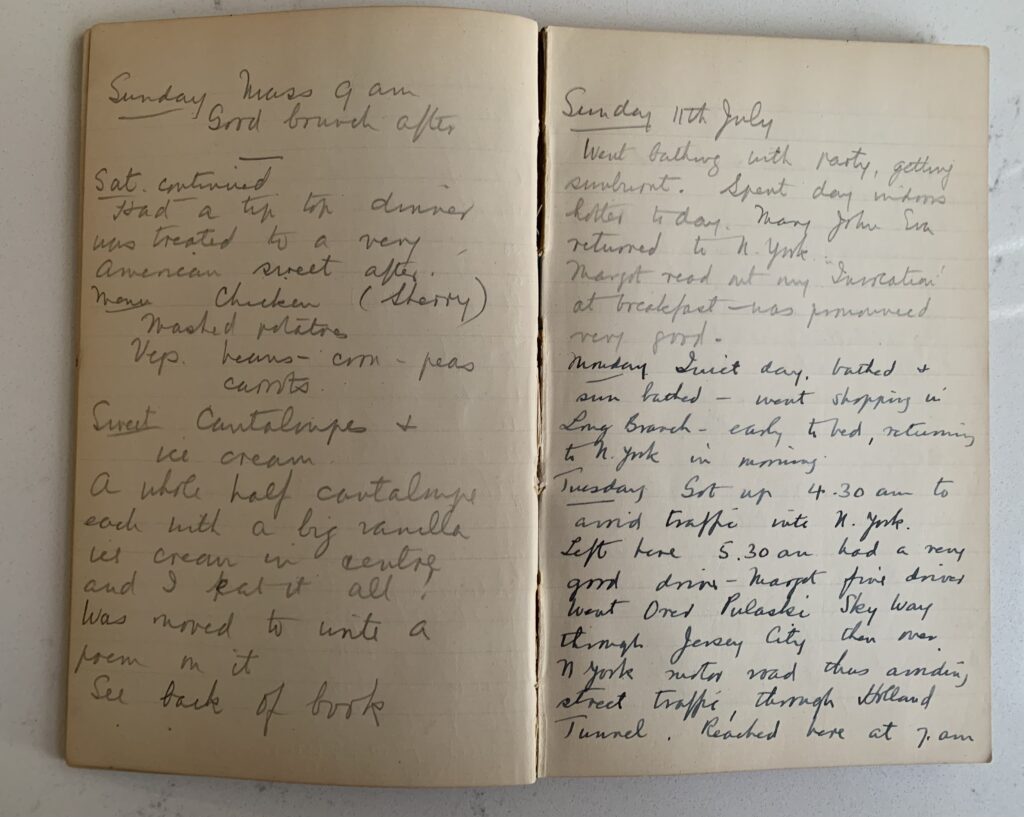 Sunday Mass 9 am
Good brunch after
Sat. continued
Had a tip top dinner
was treated to a very
American sweet after.
Menu Chicken (Sherry)
Mashed potatoes
Veg. beans - corn - peas
carrots.
Sweet Cantaloupes +
ice cream.
A whole half cantaloupe
each with a big vanilla
ice cream in centre,
and I eat it all!
Was moved to write a
poem on it
See back of book
Sunday 11th July
Went bathing with party, getting
sunburnt. Spent day indoors
hotter today. Mary John Eva
returned to N. York.
Margot read out my 'Invocation'
at breakfast - was pronounced
very good.
Monday Quiet day, bathed +
sun bathed - went shopping in
Long Branch - early to bed, returning
to N. York in morning.
Tuesday Got up 4.30 am to
avoid traffic into N. York.
Left here 5.30 am had a very
good drive - Margot fine driver
Went Over Pulaski Sky Way
through Jersey City then over
N York motor road thus avoiding
street traffic, through Holland
Tunnel. Reached here at 7. am